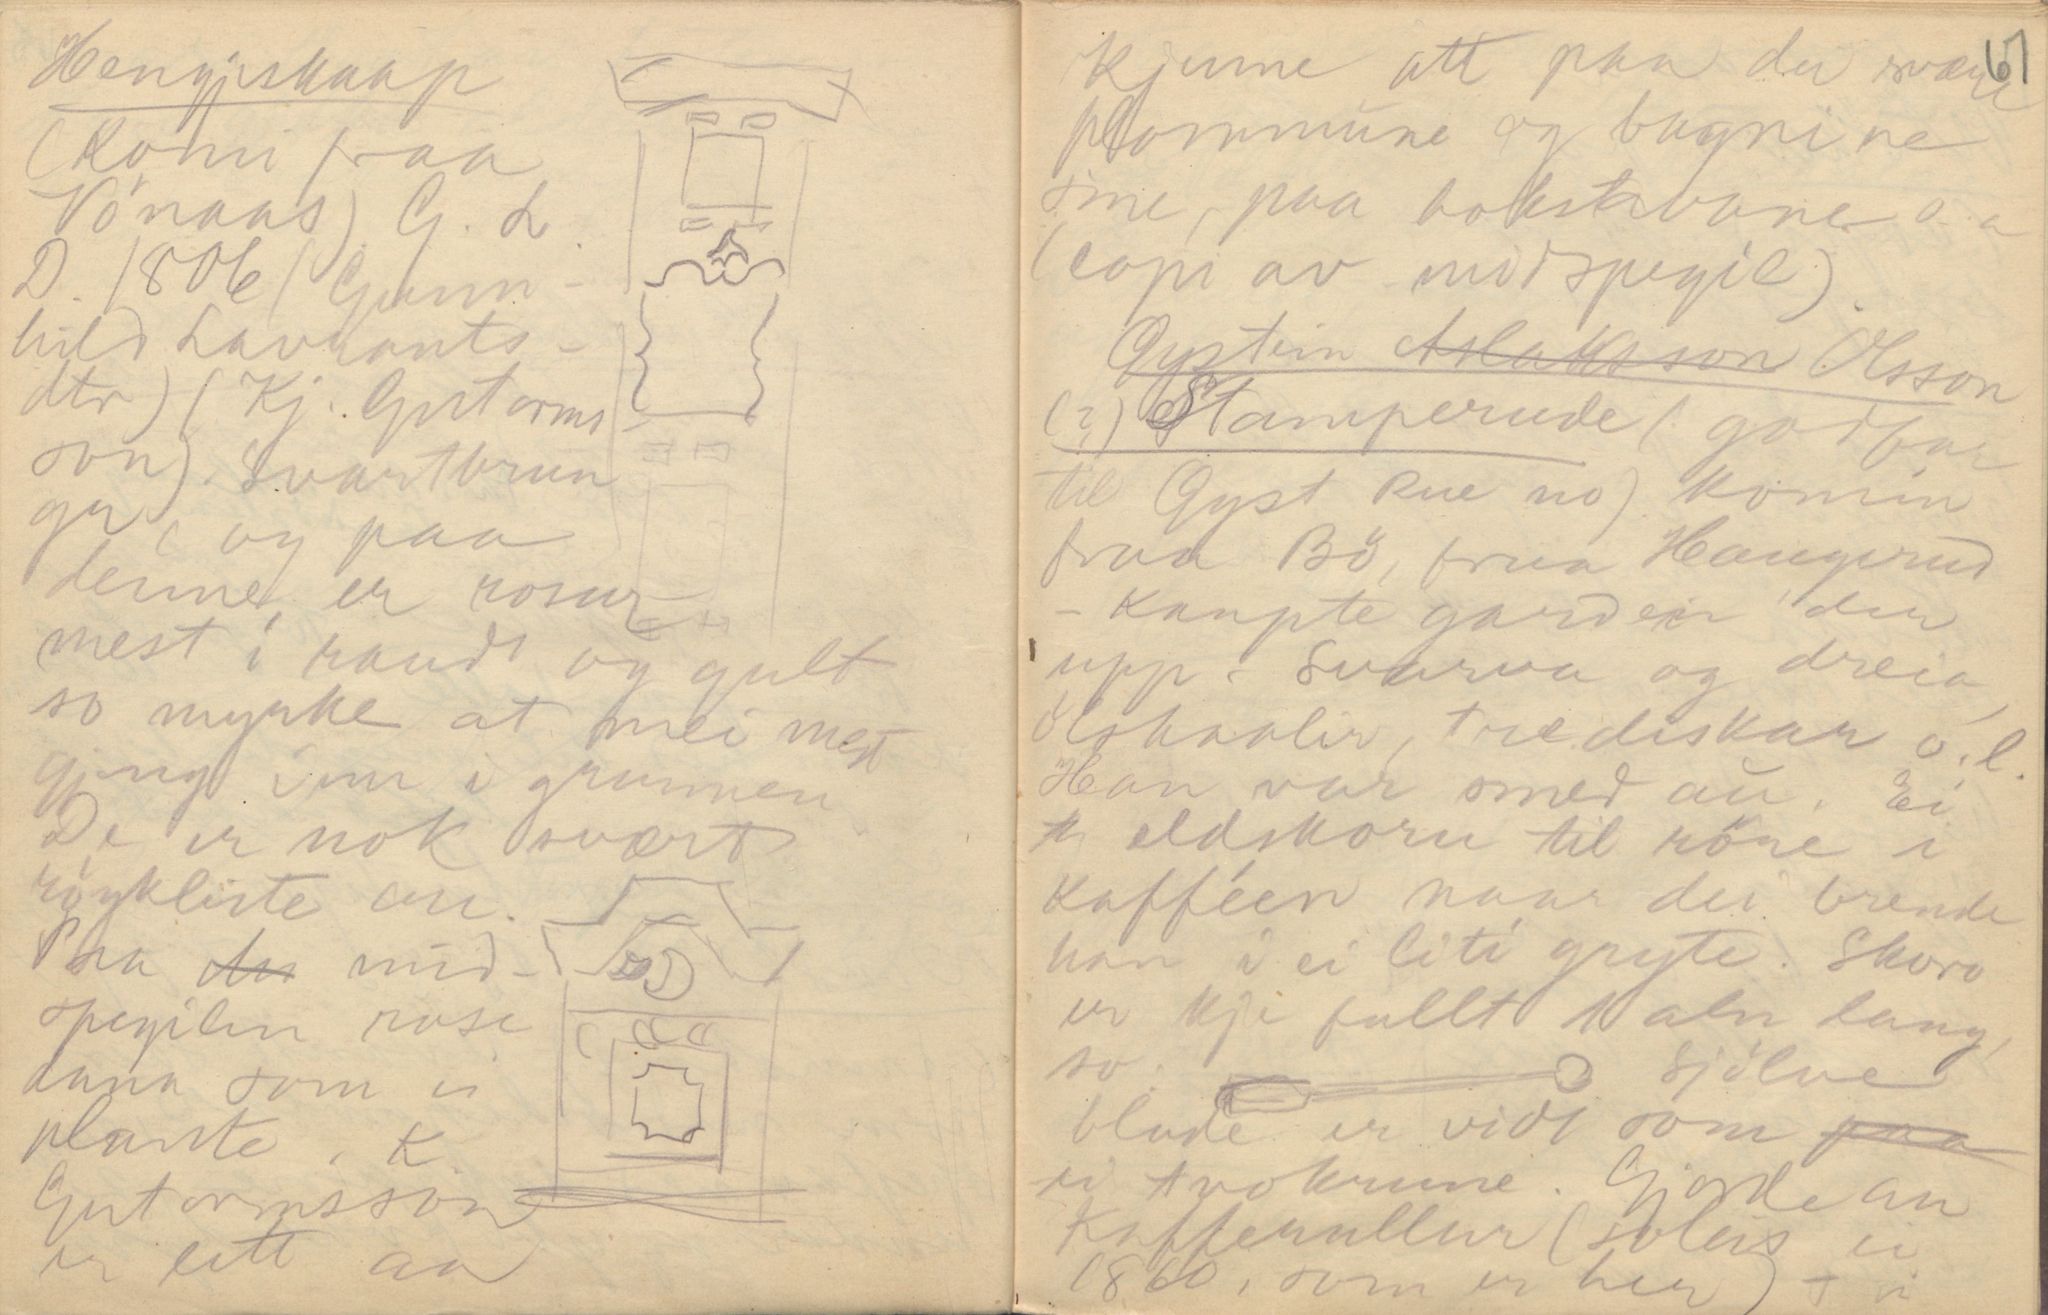 Hengjeskaap
(Komi fraa
Vönaas) G. L.
D. 1806 (Gunn-
hild Lavrants-
dtr) (Kj. Gutorms-
son). Svartbrun
og paa
denne er rosur
mest i raudt og gult
so myrke at mest
gjeng inn i grunnen
De er nok svært
röykliste au.
Paa mid-
spegilen rose
som ei
plante. K.
Gutormsson
er lett aa
67
kjenne att paa dei svære
plommune og bognine
sine, paa bokstavane o. a
(copi av midspegil).
Öystein Aslaksson Olsson
(?) Stamperude (godfar
til Öyst Rue no) komin
fraa Bö, fraa Haugerud
- kaupte garden der
upp. Svarva og dreia,
ölskaalir, trediskar o. l.
Han var smed au. Ei
eldskoru til röre i
kafféen naar dei brende
han i ei liti gryte. Skoro
er kje fullt 1 aln lang,
so: sjölve
blade er vidt som paa
ei tvokrune. Gjorde au
kafferullur (soleis ei
1860, som er her)